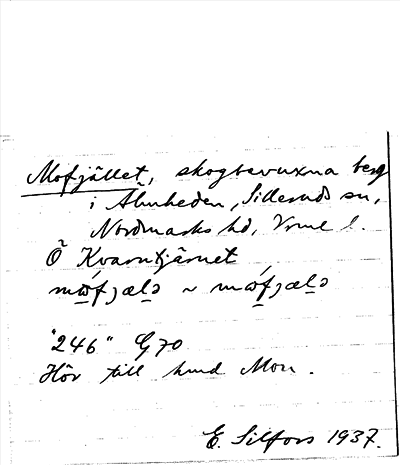 Mofjället, skogbevuxna berg
i Almheden, Silleruds sn,
Nordmarks hd, Vrml l.
Ö Kvarntjärnet
mω̄́fjælə ~ mώfjælə
"246" G70
Hör till hmd Mon.
E. Silfors 1937.